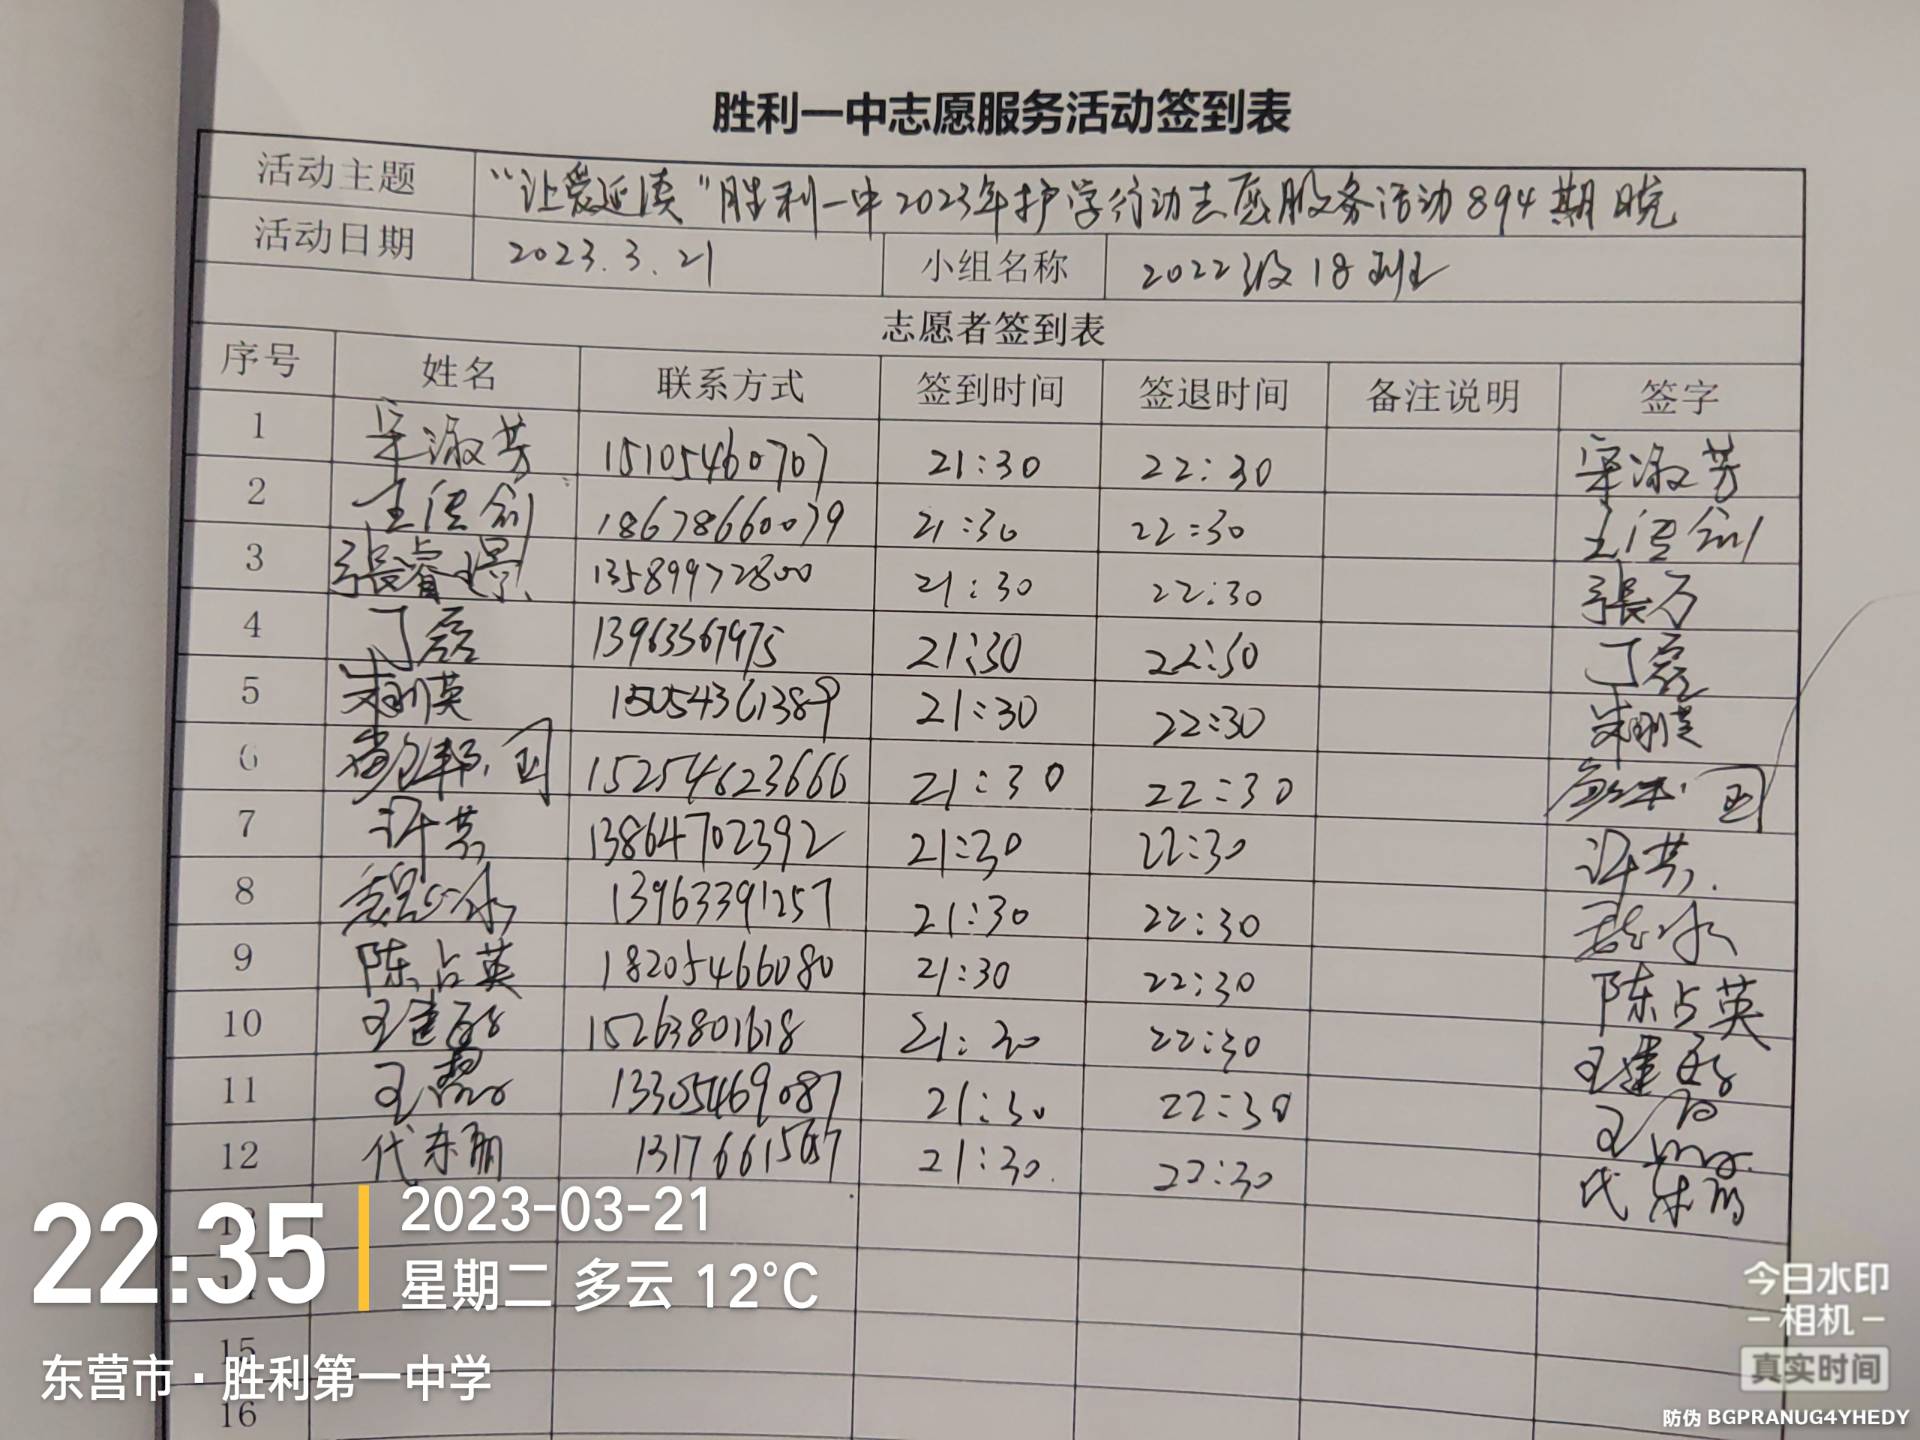 胜利一中志愿服务活动签到表
活动主题 “让爱延续”胜利一中2023年护学行动志愿服务活动894期 晚
活动日期 2023.3.21 小组名称 2022级18班
志愿者签到表
序号 姓名 联系方式 签到时间 签退时间 备注说明 签字
1 宋淑芳 15105460707 21:30 22:30 宋淑芳
2 18678660079 21:30 22:30
3 张睿璟 13589972800 21:30 22:30 張万
4 丁磊 13963367975 21:30 22:30 丁磊
5 15054361389 21:30 22:30
6 15254623666 21:30 22:30
7 许芸 13864702392 21:30 22:30 许芸
8 13963391257 21:30 22:30
9 陈占英 18205466080 21:30 22:30 陈占英
10 15263801618 21:30 22:30
11 王 13305469087 21:30 22:30 王
12 代东丽 13176615 21:30 22:30 代东丽
13
14
15
16
22:35
2023-03-21
星期二 多云 12°C
东营市·胜利第一中学
今日水印
相机
真实时间
防伪 BGPRANUG4YHEDY